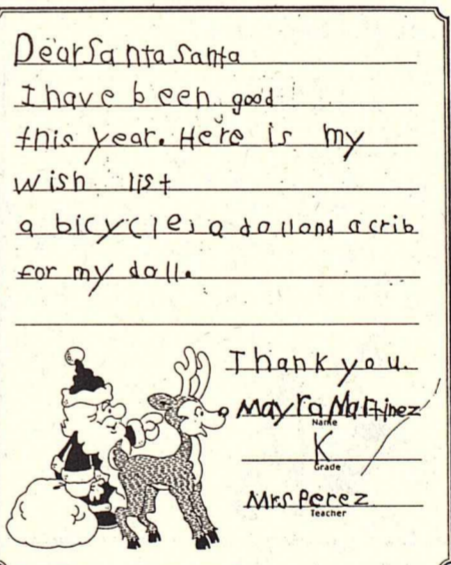 Dear Santa Santa
I have been good
this year. Here is my
wish list
a bicycle, a doll and a crib
for my doll.
Thank you.
Mayra Martinez
Name
K
Grade
Mrs Perez
Teacher